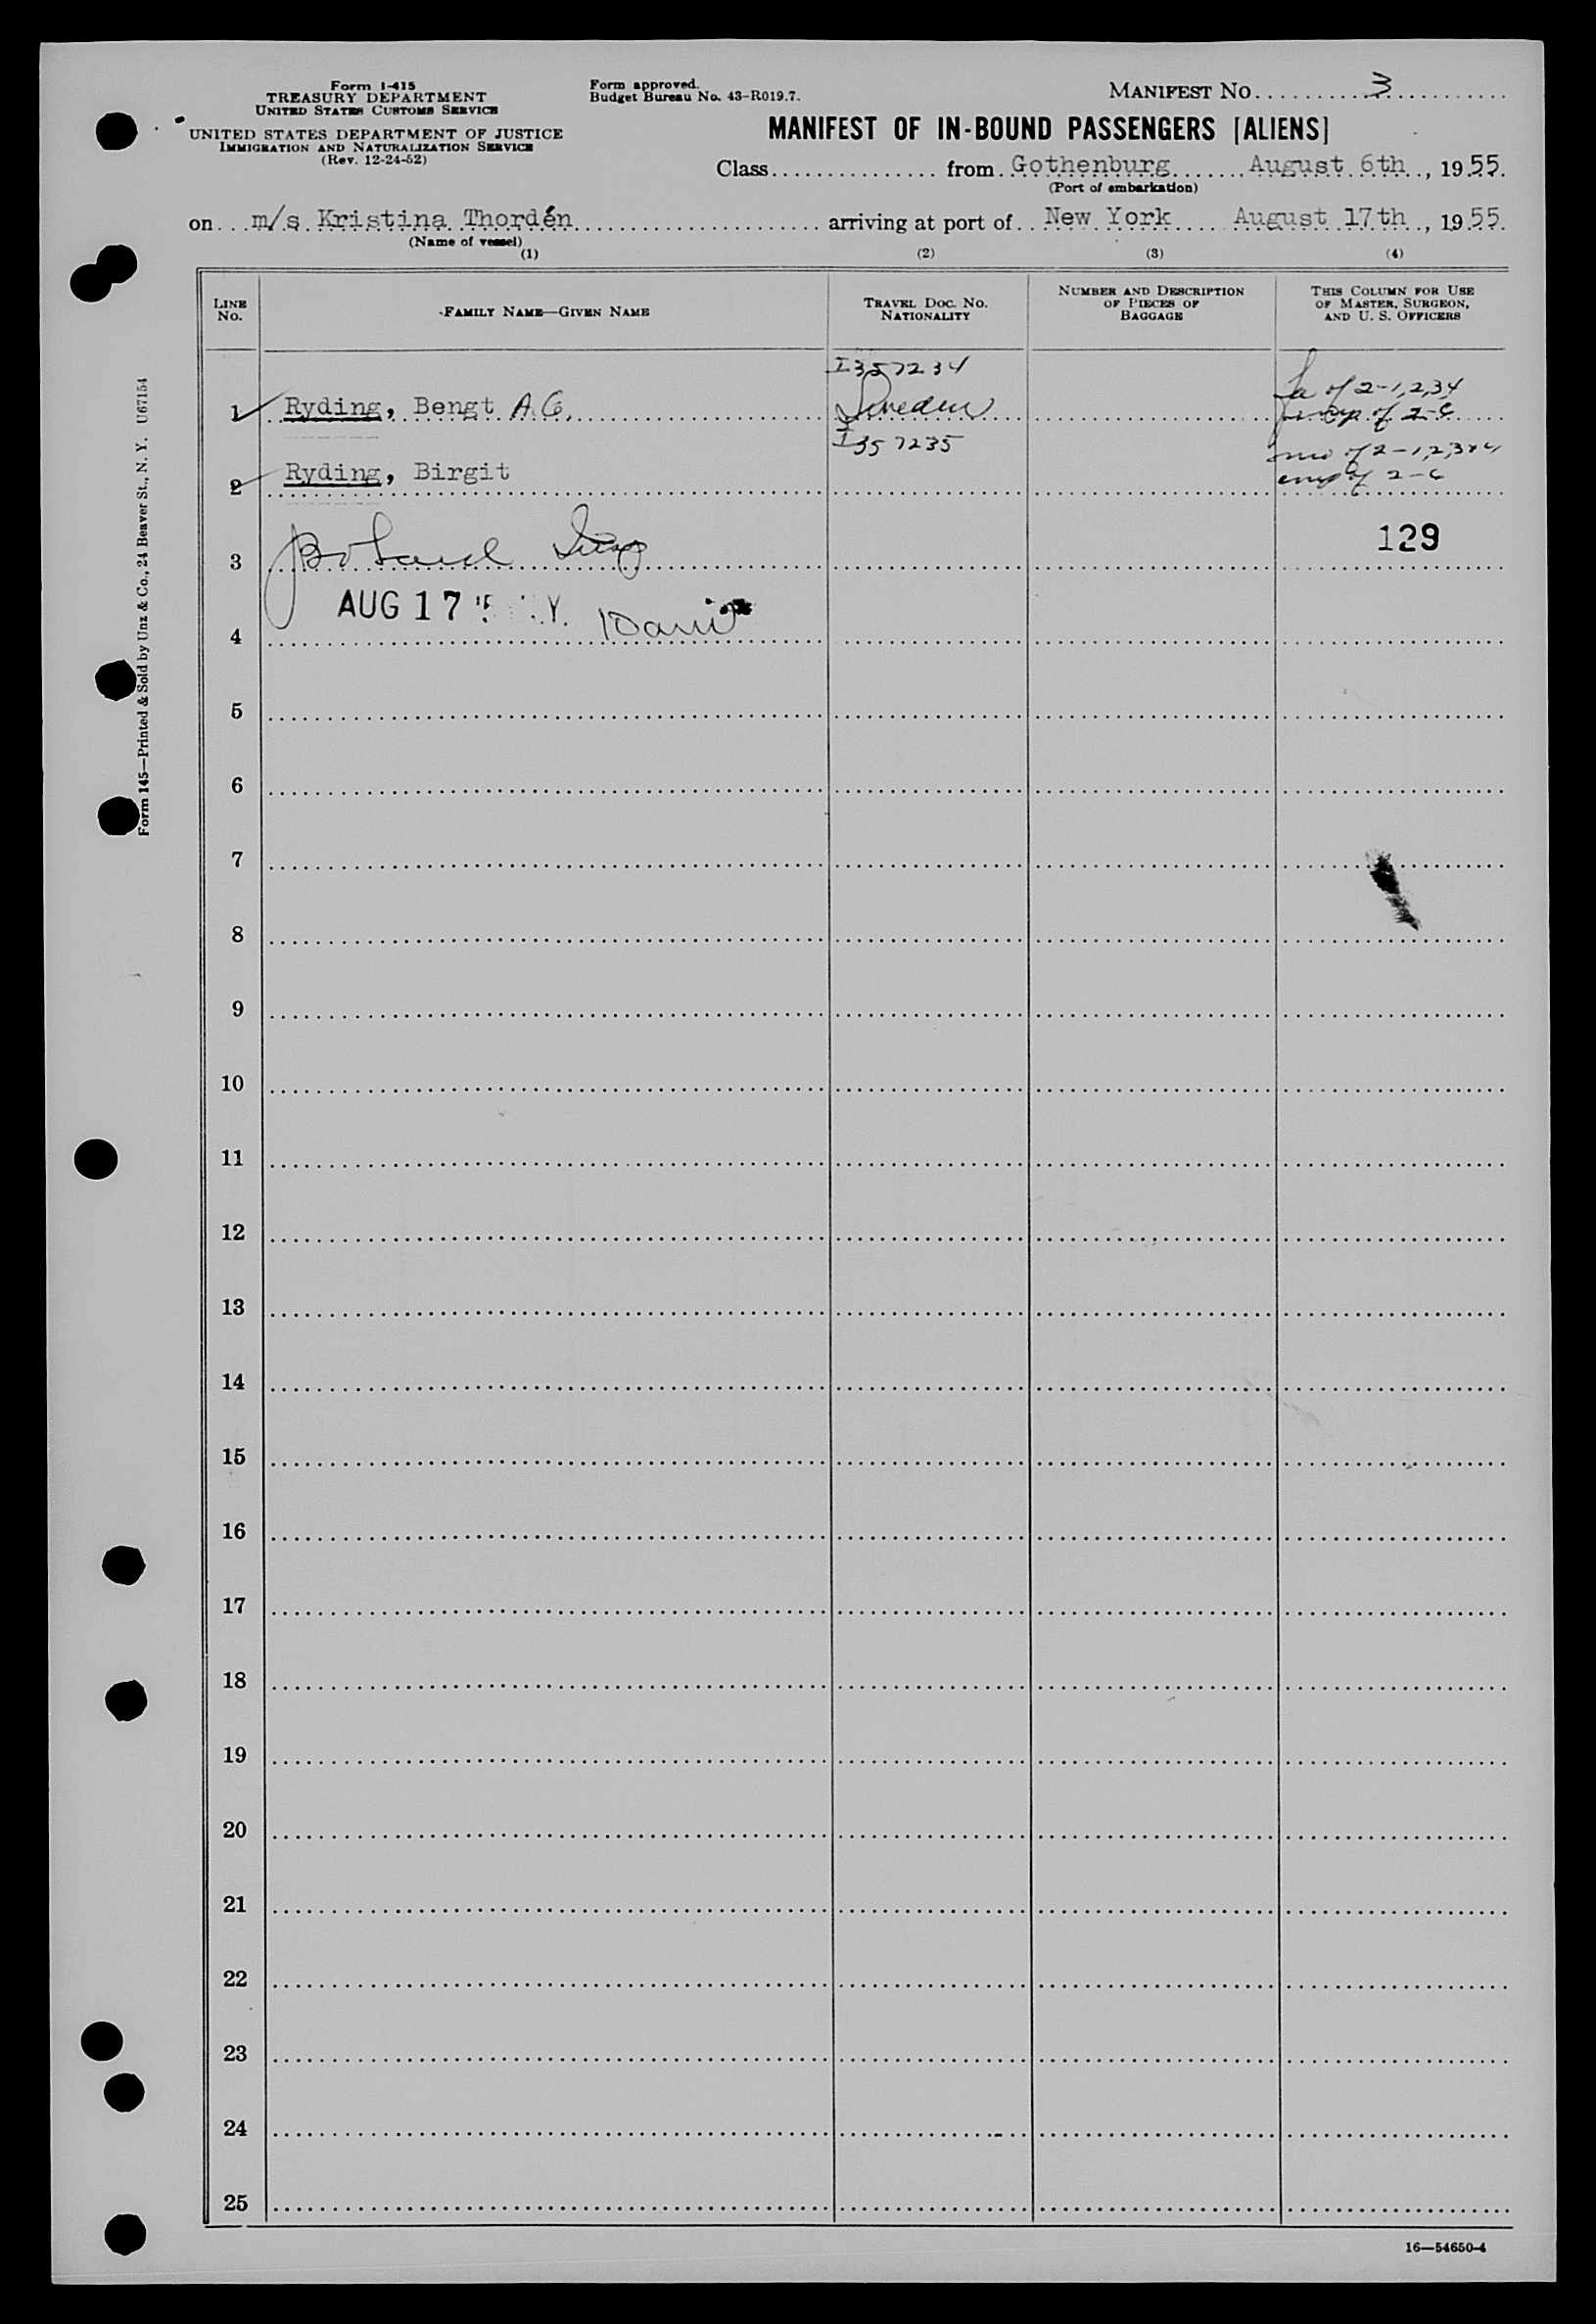 Form I-415
TREASURY DEPARTMENT
UNITED STATES CUSTOMS SERVICE
UNITED STATES DEPARTMENT OF JUSTICE
IMMIGRATION AND NATURALIZATION SERVICE
(Rev. 12-24-52)
Form approved.
Budget Bureau No. 43-R019.7.
MANIFEST NO. 3
MANIFEST OF IN-BOUND PASSENGERS [ALIENS]
Class from Gothenburg August 6th, 1955
(Port of embarkation)
on m/s Kristina Thordén arriving at port of New York August 17th, 1955
(Name of vessel)
(1) (2) (3) (4)
LINE NO.
FAMILY NAME—GIVEN NAME
TRAVEL DOC. NO. NATIONALITY
NUMBER AND DESCRIPTION OF PIECES OF BAGGAGE
THIS COLUMN FOR USE OF MASTER, SURGEON, AND U. S. OFFICERS
I357234
1 Ryding, Bengt A.G. Sweden
fa of 2-1,2,3,4
of 2-6
I357235
2 Ryding, Birgit
mo of 2-1,2,3&4
of 2-6
3
129
AUG 17
4
10 am
5
6
7
8
9
10
11
12
13
14
15
16
17
18
19
20
21
22
23
24
25
16—54650-4
Form 145—Printed & Sold by Unz & Co., 24 Beaver St., N. Y. U67154